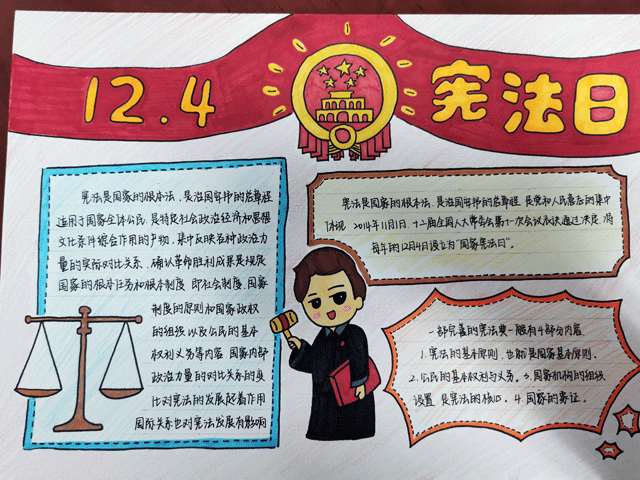 12.4 宪法日
宪法是国家的根本法,是治国安邦的总章程
适用于国家全体公民,是特定社会政治经济和思想
文化条件综合作用的产物,集中反映各种政治力
量的实际对比关系,确认革命胜利成果是规定
国家的根本任务和根本制度 即社会制度、国家
制度的原则和国家政权
的组织以及公民的基本
权利义务等内容 国家内部
政治力量的对比关系的变
化对宪法的发展起着作用
国际关系也对宪法发展有影响
宪法是国家的根本法,是治国安邦的总章程 是党和人民意志的集中
体现 2014年11月1日,十二届全国人大常委会第十一次会议表决通过决定,将
每年的12月4日设立为“国家宪法日”。
一部完善的宪法典一般有4部分内容
1.宪法的基本原则,也即是国家基本原则.
2.公民的基本权利与义务。3.国家机构的组织
设置 是宪法的核心。4.国家的象征。